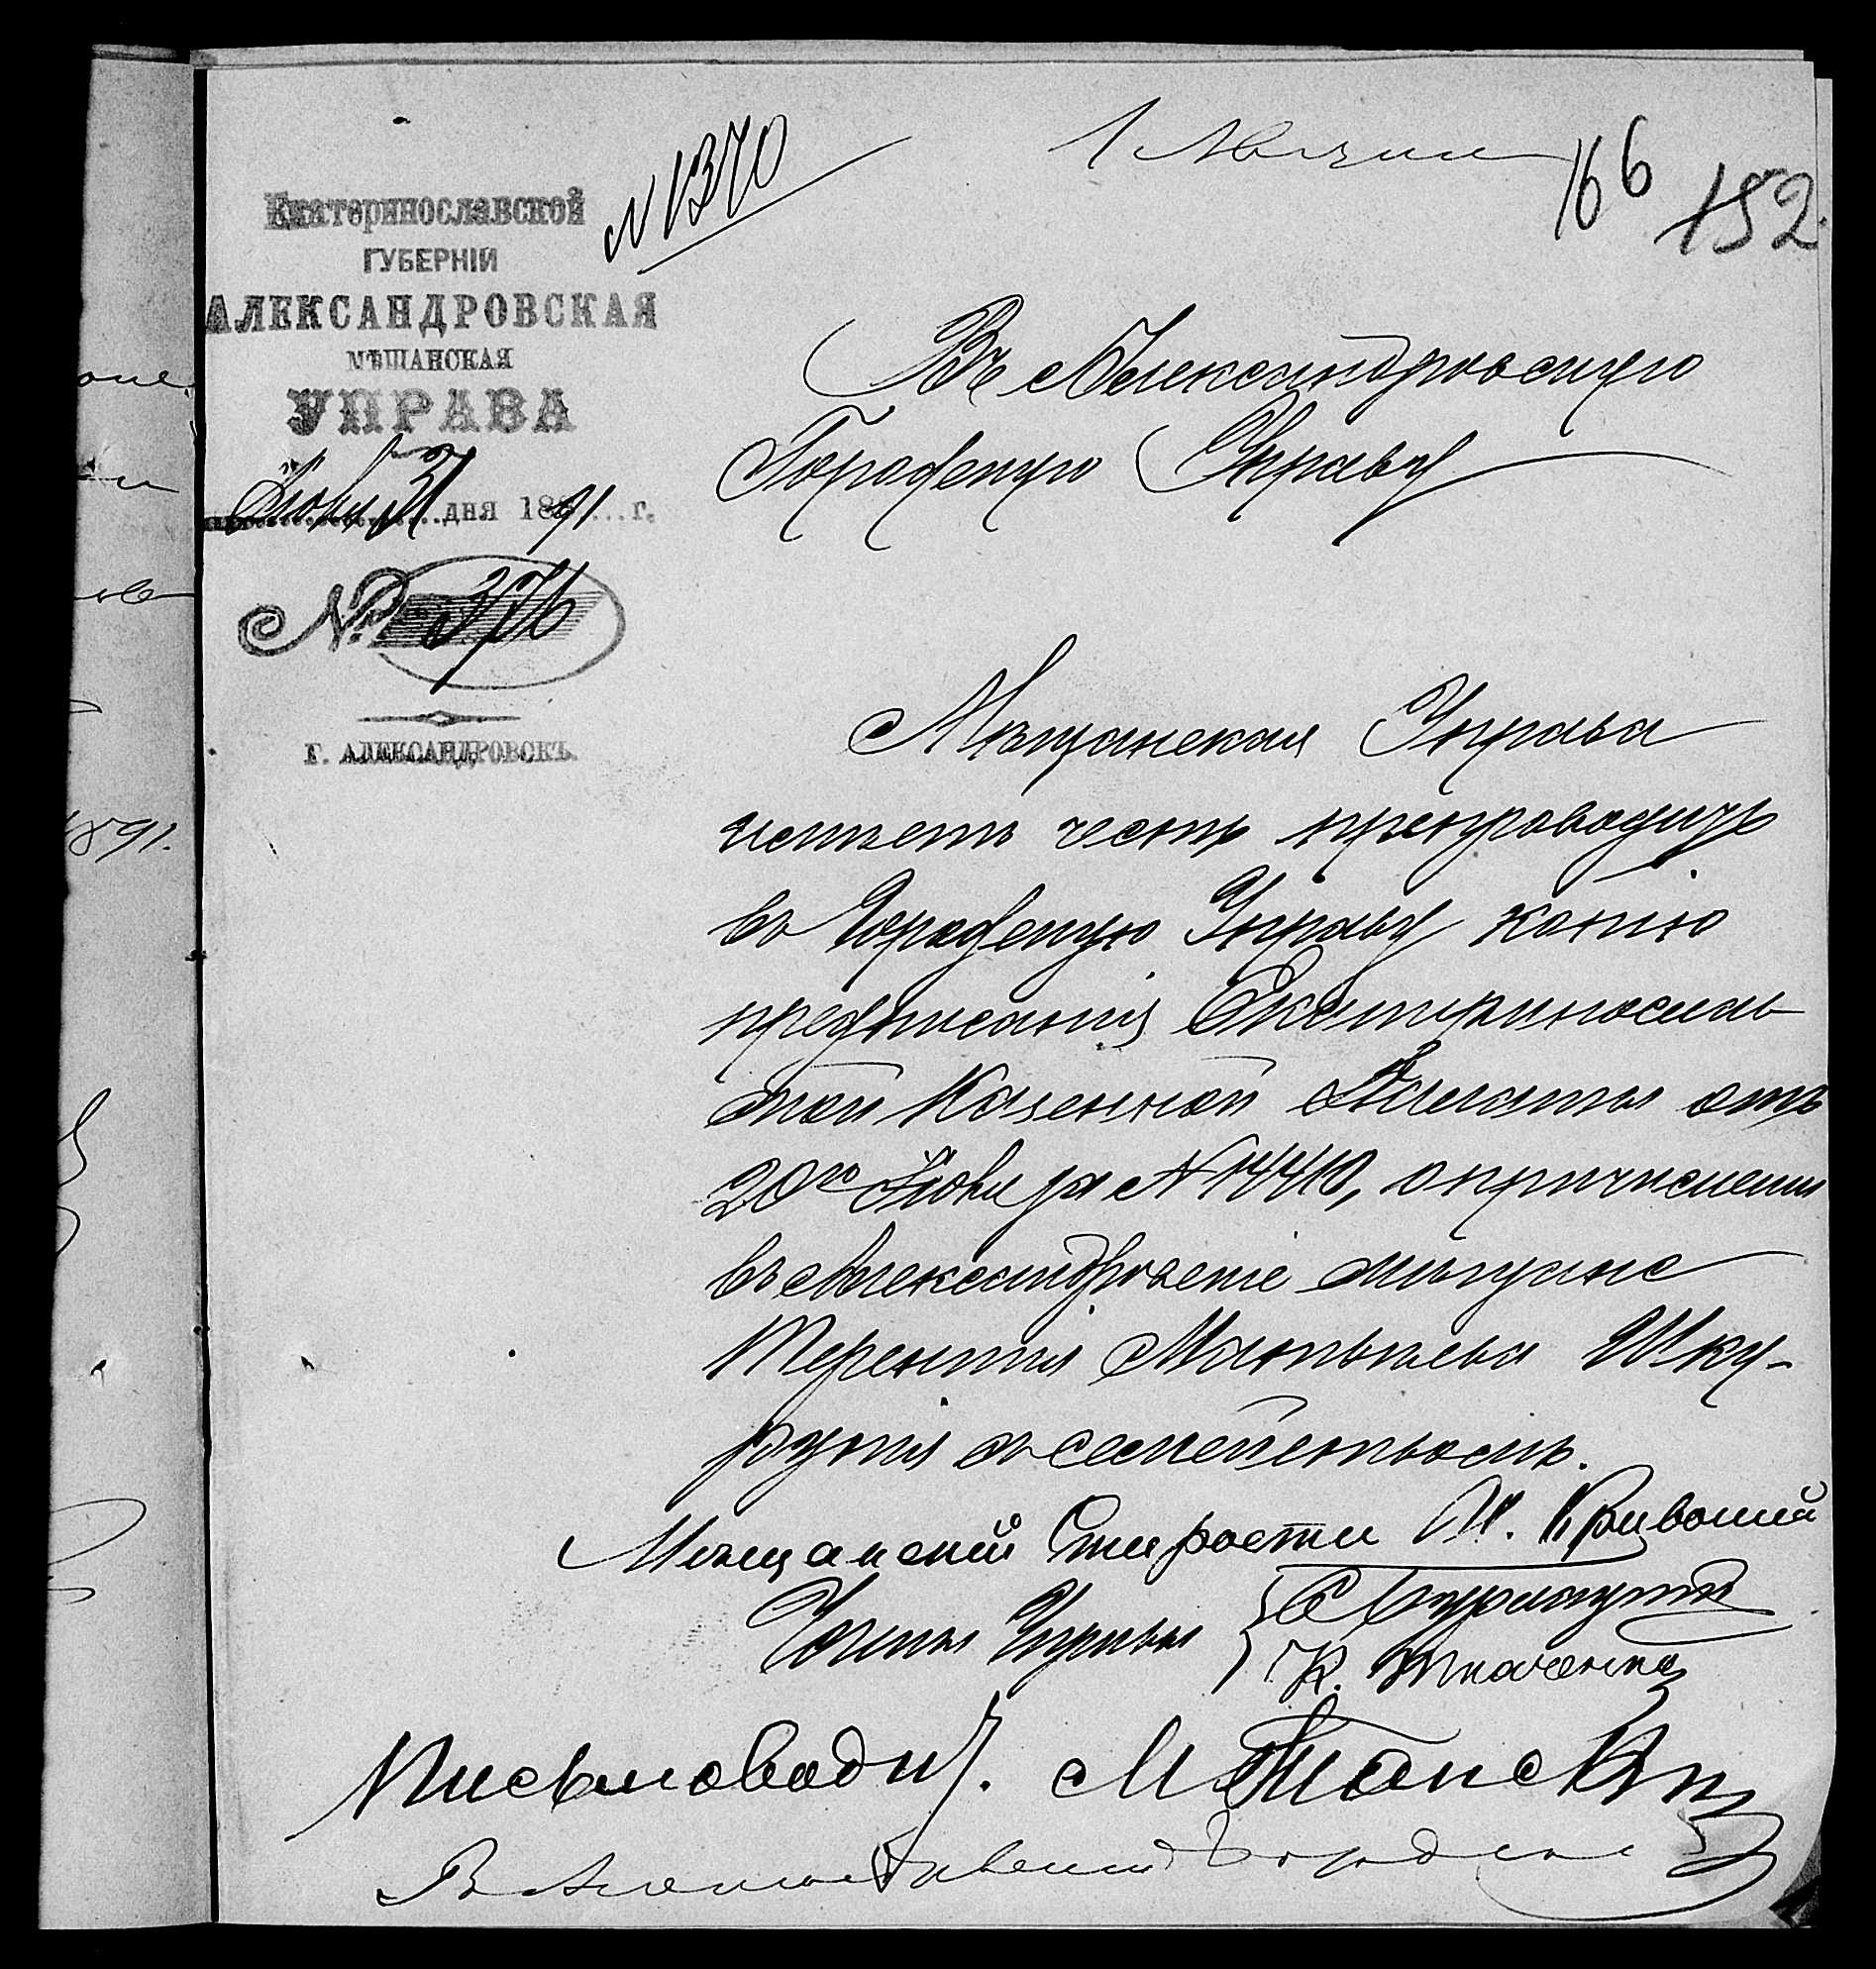 № 1370
166
152
Екатеринославской
ГУБЕРНІИ
АЛЕКСАНДРОВСКАЯ
МѢЩАНСКАЯ
УПРАВА
31 дня 1891 г.
№ 376
Г. АЛЕКСАНДРОВСКЪ.
Въ Александровскую
Городскую Управу
Мѣщанская Управа
имѣетъ честь препроводить
въ Городскую Управу копію
предписанія Екатеринослав
ской Казенной Палаты отъ
20го за № 1440, о причисленіи
въ Александровскіе мѣщане
Терентія Матвѣева Шку-
рупія съ семействомъ.
Мѣщанскій Староста И. Кривошій
Члены Управы
К. Ткаченко
Письмоводит.
1891.